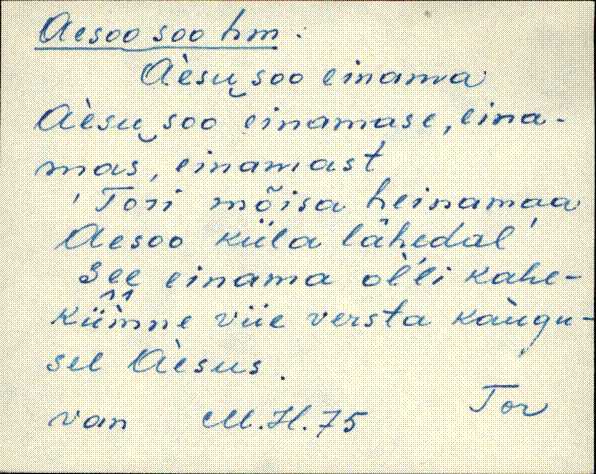 Aesoo soo hm.
Àesu‿soo einama
Àesu‿soo einamase, eina-
mas, einamast
'Tori mõisa heinamaa
Aesoo küla lähedal'
See einama ol̀li kahe-
küm̀ne viie versta kàugu-
sel Àesus.
van M.H.75 Tor